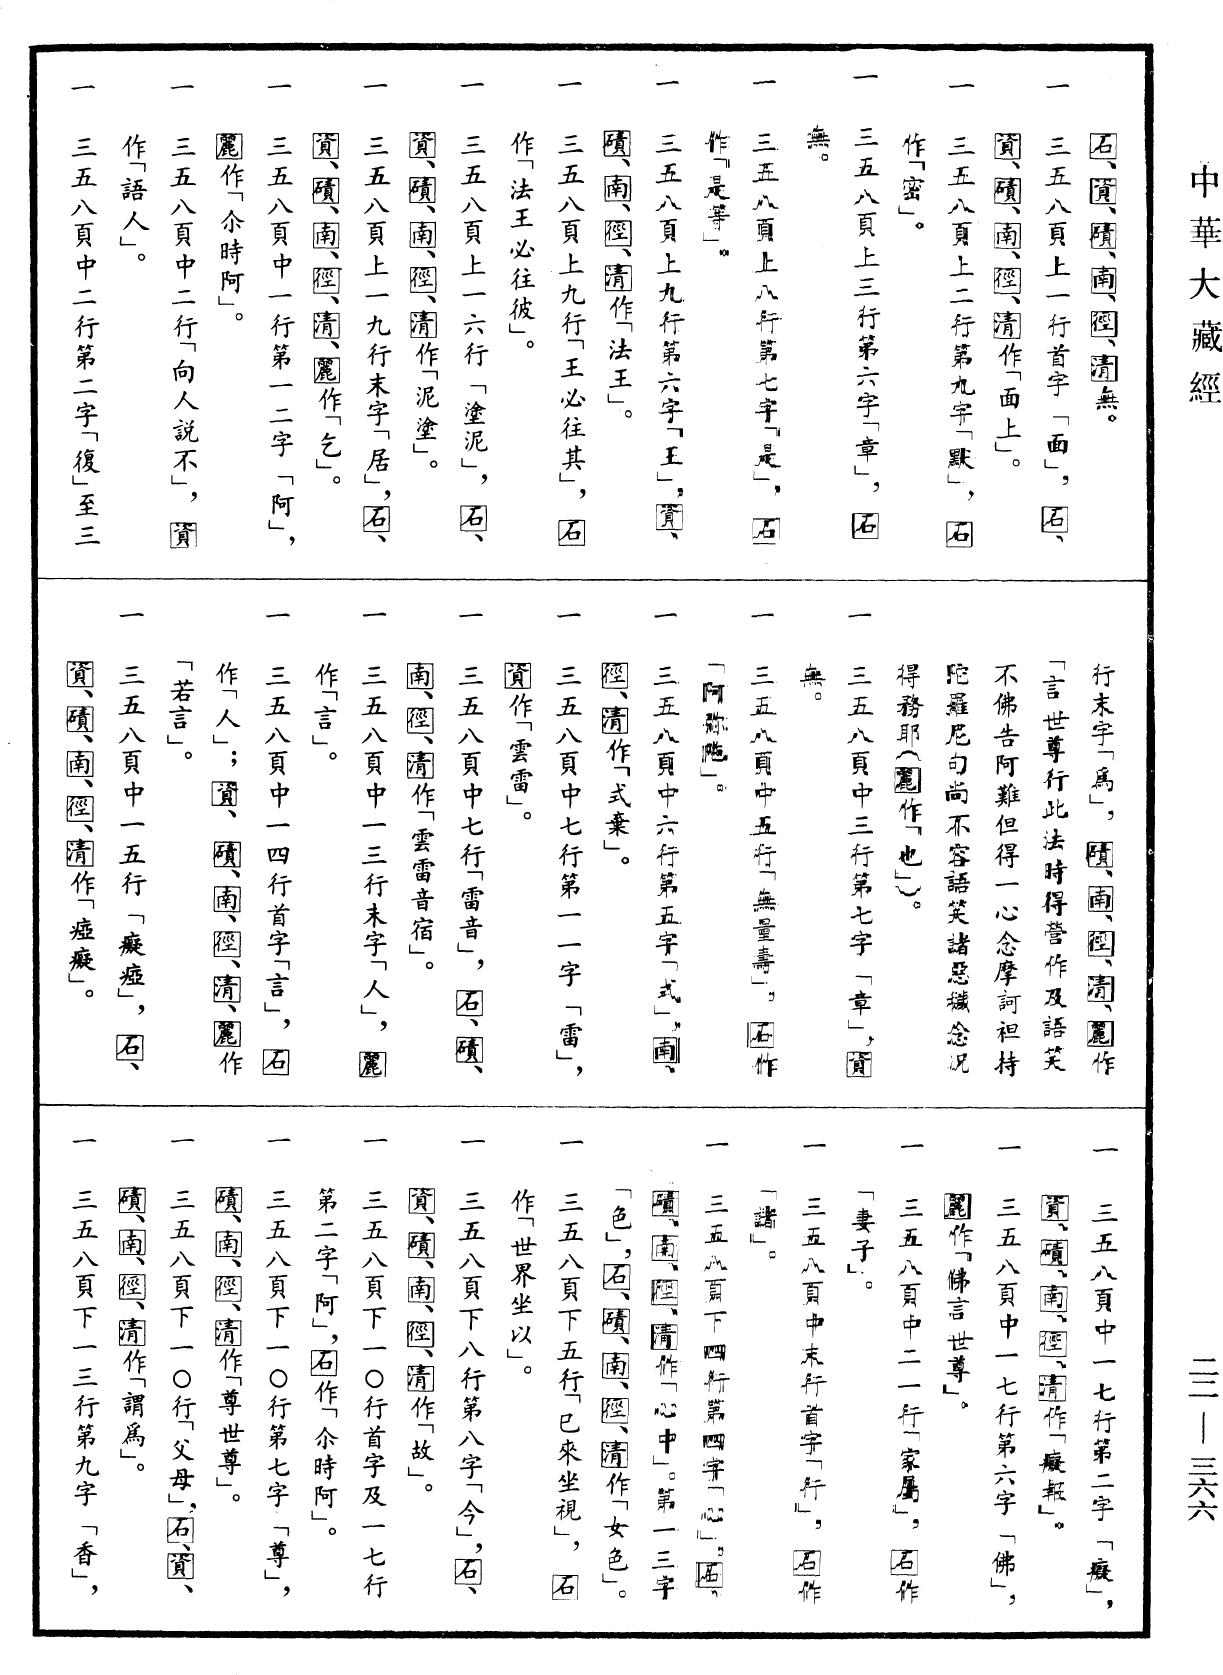 中華大藏經
石、資、磧、南、徑、清無。
一 三五八頁上一行首字「面」，石、
資、磧、南、徑、清作「面上」。
一 三五八頁上二行第九字「默」，石
作「密」。
一 三五八頁上三行第六字「章」，石
無。
一 三五八頁上八行第七字「是」，石
作「是等」。
一 三五八頁上九行第六字「王」，資、
磧、南、徑、清作「法王」。
一 三五八頁上九行「王必往其」，石
作「法王必往彼」。
一 三五八頁上一六行「塗泥」，石、
資、磧、南、徑、清作「泥塗」。
一 三五八頁上一九行末字「居」，石、
資、磧、南、徑、清、麗作「乞」。
一 三五八頁中一行第一二字「阿」，
麗作「尒時阿」。
一 三五八頁中二行「向人説不」，資
作「語人」。
一 三五八頁中二行第二字「復」至三
行末字「爲」，磧、南、徑、清、麗作
「言世尊行此法時得營作及語笑
不佛告阿難但得一心念摩訶袒持
陀羅尼句尚不容語笑諸惡穢念况
得務耶（麗作「也」）。
一 三五八頁中三行第七字「章」，資
無。
一 三五八頁中五行「無量壽」，石作
「阿弥陁」。
一 三五八頁中六行第五字「式」，南、
徑、清作「式棄」。
一 三五八頁中七行第一一字「雷」，
資作「雲雷」。
一 三五八頁中七行「雷音」，石、磧、
南、徑、清作「雲雷音宿」。
一 三五八頁中一三行末字「人」，麗
作「言」。
一 三五八頁中一四行首字「言」，石
作「人」；資、磧、南、徑、清、麗作
「若言」。
一 三五八頁中一五行「癡瘂」，石、
資、磧、南、徑、清作「瘂癡」。
一 三五八頁中一七行第二字「癡」，
資、磧、南、徑、清作「癡報」。
一 三五八頁中一七行第六字「佛」，
麗作「佛言世尊」。
一 三五八頁中二一行「家屬」，石作
「妻子」。
一 三五八頁中末行首字「行」，石作
「諸」。
一 三五八頁下四行第四字「心」，石、
磧、南、徑、清作「心中」。第一三字
「色」，石、磧、南、徑、清作「女色」。
一 三五八頁下五行「已來坐視」，石
作「世界坐以」。
一 三五八頁下八行第八字「今」，石、
資、磧、南、徑、清作「故」。
一 三五八頁下一〇行首字及一七行
第二字「阿」，石作「尒時阿」。
一 三五八頁下一〇行第七字「尊」，
磧、南、徑、清作「尊世尊」。
一 三五八頁下一〇行「父母」，石、資、
磧、南、徑、清作「謂爲」。
一 三五八頁下一三行第九字「香」，
二二—三六六